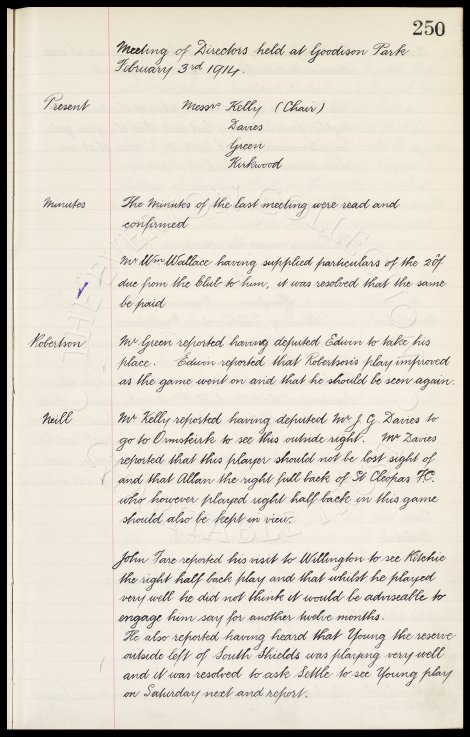 250
Meeting of Directors held at Goodison Park
February 3rd 1914.
Present Messrs Kelly (Chair)
Davies
Green
Kirkwood
Minutes The Minutes of the last meeting were read and
confirmed
Mr Wm Wallace having supplied particulars of the
due from the Club to him, it was resolved that the same
be paid
Robertson Mr Green reported having deputed Edwin to take his
place. Edwin reported that Robertson's play improved
as the game went on and that he should be seen again.
Neill Mr Kelly reported having deputed Mr J. G. Davies to
go to Ormskirk to see this outside right. Mr Davies
reported that this player should not be lost sight of
and that Allan the right full back of St Cleopas F.C.
who however played right half back in this game
should also be kept in view.
John Fare reported his visit to Willington to see Ritchie
the right half back play and that whilst he played
very well he did not think it would be adviseable to
engage him say for another twelve months.
He also reported having heard that Young the reserve
outside left of South Shields was playing very well
and it was resolved to ask Settle to see Young play
on Saturday next and report.